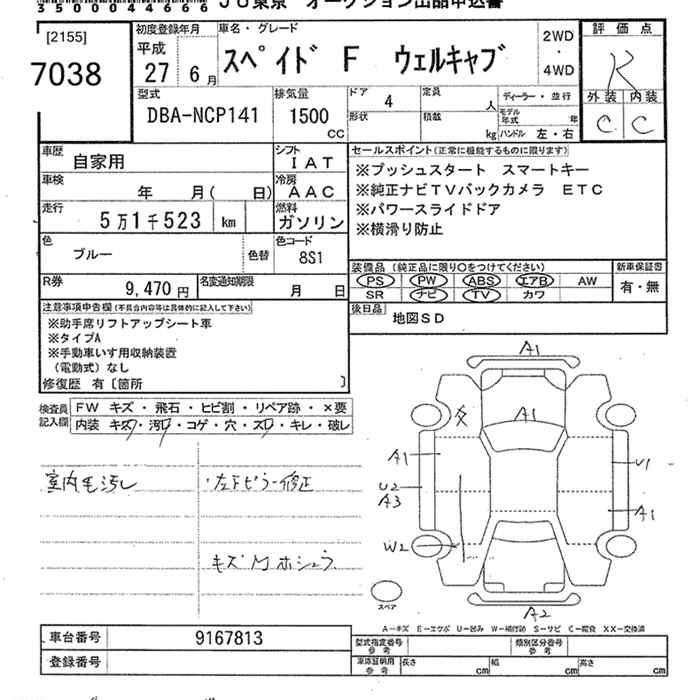 35000044666 JU東京 オークション出品申込書
[2155]
7038
初度登録年月
平成
27 6月
車名・グレード
スペイド F ウェルキャブ
2WD
・
4WD
評価点
R
外装 内装
C C
型式
DBA-NCP141
排気量
1500
CC
ドア
4
形状
定員
人
積載
kg
ディーラー・並行
モデル年式 年
ハンドル 左・右
車歴
自家用
シフト
IAT
車検
年 月( 日)
冷房
AAC
走行
5万1千523 km
燃料
ガソリン
色
ブルー
色替
色コード
8S1
R券
9,470円
名変通知期限
月 日
セールスポイント(正常に機能するものに限ります)
※プッシュスタート スマートキー
※純正ナビTVバックカメラ ETC
※パワースライドドア
※横滑り防止
装備品 (純正品に限り○をつけてください)
PS PW ABS エアB AW
SR ナビ TV カワ
新車保証書
有・無
後日品
地図SD
注意事項申告欄(不具合内容等は具体的に記入して下さい)
※助手席リフトアップシート車
※タイプA
※手動車いす用収納装置
(電動式)なし
修復歴 有〔箇所 〕
検査員
記入欄
FW キズ・飛石・ヒビ割・リペア跡・×要
内装 キズ・汚レ・コゲ・穴・スレ・キレ・破レ
室内毛汚し
・左下ピラー修正
キズ M ホシュウ
A1
A1
A1
U2
A3
W2
U1
A1
A2
スペア
A-キズ E-エクボ U-凹み W-補修跡 S-サビ C-腐食 XX-交換済
車台番号
9167813
登録番号
型式指定番号
参考
類別区分番号
参考
車庫証明用
参考
長さ cm
幅 cm
高さ cm